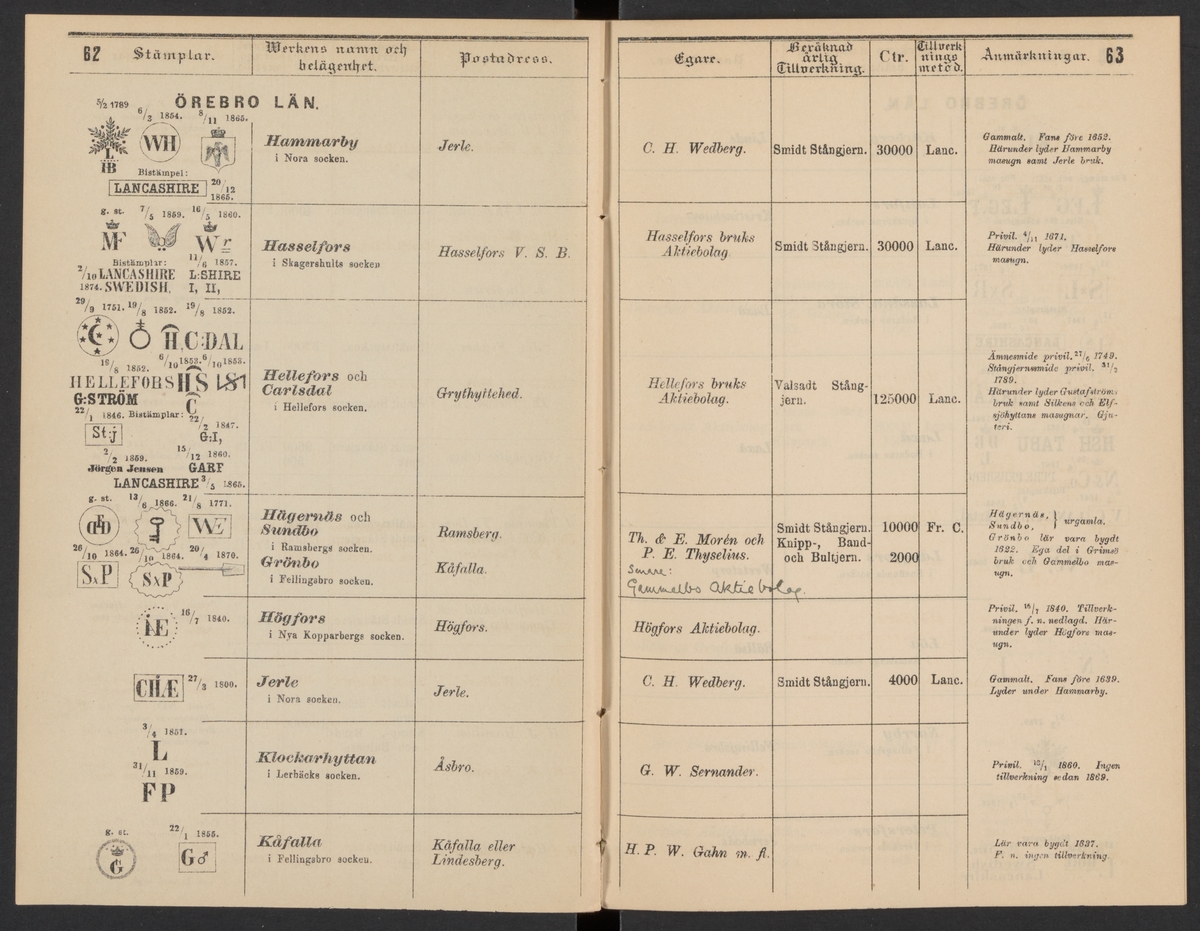 62 Stämplar.
Werkens namn och
belägenhet.
Postadress.
Egare.
Beräknad
årlig
Tillverkning.
Ctr.
Tillverk
nings
metod.
Anmärkningar. 63
ÖREBRO LÄN.
5/2 1789
6/3 1854. 8/11 1865.
WH
L
IB
Bistämpel:
LANCASHIRE 20/12
1865.
Hammarby
i Nora socken.
Jerle.
C. H. Wedberg.
Smidt Stångjern.
30000
Lanc.
Gammalt. Fans före 1652.
Härunder lyder Hammarby
masugn samt Jerle bruk.
g. st. 7/5 1859. 16/5 1860.
MF W r
Bistämplar: 11/6 1857.
2/10 LANCASHIRE L:SHIRE
1874. SWEDISH. I, II,
Hasselfors
i Skagershults socken
Hasselfors V. S. B.
Hasselfors bruks
Aktiebolag
Smidt Stångjern.
30000
Lanc.
Privil. 4/11 1671.
Härunder lyder Hasselfors
masugn.
29/9 1751. 19/8 1852. 19/8 1852.
H,C:DAL
16/8 1852. 6/10 1853. 6/10 1853.
HELLEFORS HS
G:STRÖM C
22/1 1846. Bistämplar: 22/2 1847.
St:j G:I,
2/2 1859. 15/12 1860.
Jörgen Jensen GARF
LANCASHIRE 3/5 1865.
Hellefors och
Carlsdal
i Hellefors socken.
Grythyttehed.
Hellefors bruks
Aktiebolag.
Valsadt Stång-
jern.
125000
Lanc.
Ämnesmide privil. 27/6 1749.
Stångjernssmide privil. 31/3
1789.
Härunder lyder Gustafströms
bruk samt Silkens och Elf-
sjöhyttans masugnar. Gju-
teri.
g. st. 13/6 1866. 21/8 1771.
WE
26/10 1864. 26/10 1864. 20/4 1870.
SAP SAP
Hägernäs och
Sundbo
i Ramsbergs socken.
Grönbo
i Fellingsbro socken.
Ramsberg.
Kåfalla.
Th. & E. Morén och
P. E. Thyselius.
Senare:
Gammelbo Aktiebolag.
Smidt Stångjern.
Knipp-, Band-
och Bultjern.
10000
2000
Fr. C.
Hägernäs, } urgamla.
Sundbo,
Grönbo lär vara bygdt
1622. Ega del i Grimsö
bruk och Gammelbo mas-
ugn.
iE 16/7 1840.
Högfors
i Nya Kopparbergs socken.
Högfors.
Högfors Aktiebolag.
Privil. 16/7 1840. Tillverk-
ningen f. n. nedlagd. Här-
under lyder Högfors mas-
ugn.
CHÆ 27/3 1800.
Jerle
i Nora socken.
Jerle.
C. H. Wedberg.
Smidt Stångjern.
4000
Lanc.
Gammalt. Fans före 1639.
Lyder under Hammarby.
3/4 1851.
L
31/11 1859.
FP
Klockarhyttan
i Lerbäcks socken.
Åsbro.
G. W. Sernander.
Privil. 1860. Ingen
tillverkning sedan 1869.
g. st. 22/1 1855.
G G♂
Kåfalla
i Fellingsbro socken.
Kåfalla eller
Lindesberg.
H. P. W. Gahn m. fl.
Lär vara bygdt 1637.
F. n. ingen tillverkning.